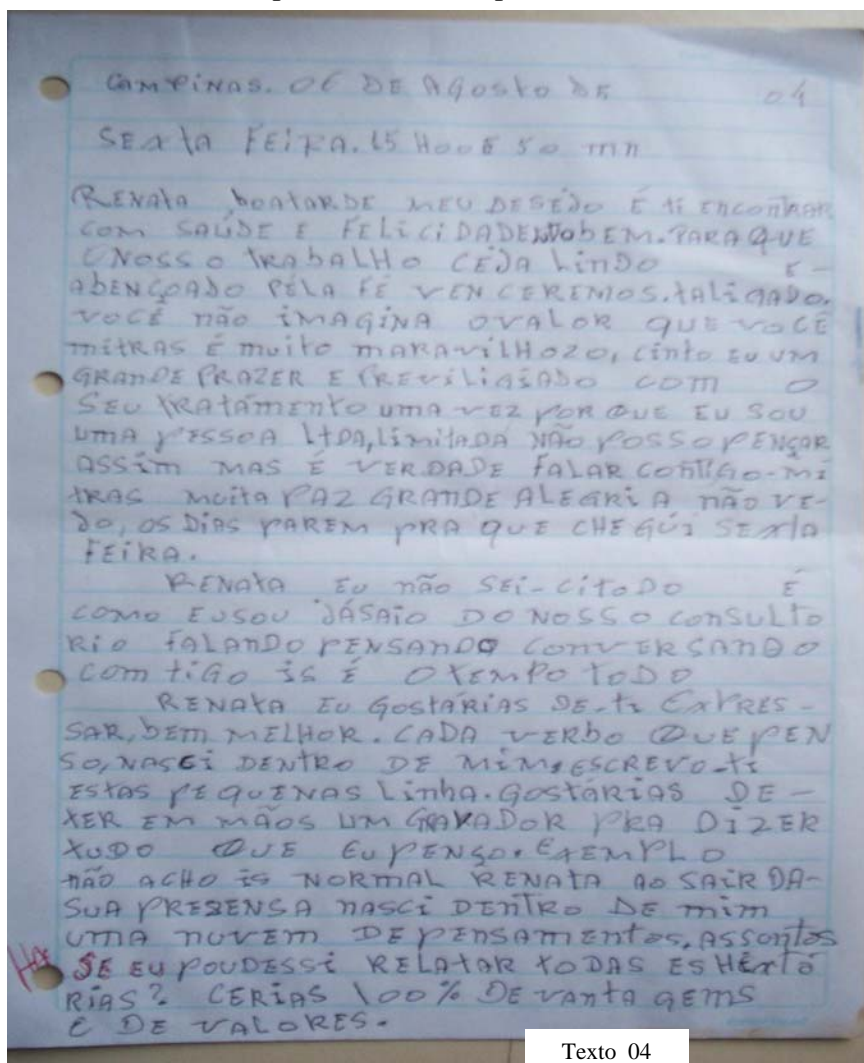 CAMPINAS. 06 DE AGOSTO DE 04
SEXTA FEIRA. 15 HOOE 50 mn
RENATA boatARDE MEU DESEJO É ti ENCONTRAR
COM SAÚDE E FELiCiDADE,tobEM. PARA QUE
O NOSSO TRAbALHO CEJA LiNDO E-
AbENÇOADO PELA FÉ VENCEREMOS. tALiGADO.
VOCÊ NÃO iMAGiNA OVALOR QUE VOCÊ
MiTRAS É MUiTO MARAViLHOZO, CiNTO EU UM
GRANDE PRAZER E PREViLiGiADO COM O
SEU TRATAMENTO UMA VEZ PORQUE EU SOU
UMA PESSOA LTDA, LiMiTADA NÃO POSSO PENÇAR
ASSiM MAS É VERDADE FALAR CONTiGO-Mi
TRAS MUiTA PAZ GRANDE ALEGRiA NÃO VE-
JO, OS DiAS PAREM PRA QUE CHEGÚi SEXTA
FEiRA.
RENATA EU NÃO SEi-CiTODO É
COMO EUSOU JÁSAiO DO NOSSO CONSULTO
RiO FALANDO PENSANDO CONVERSANDO
COM TiGO iS É OTEMPO TODO
RENATA EU GOSTÁRiAS DE-ti EXPRES-
SAR, bEM MELHOR. CADA VERbO QUE PEN
SO, NASCi DENTRO DE MiM, ESCREVO-ti
ESTAS PEQUENAS LiNHA. GOSTÁRiAS DE-
TER EM MÃOS UM GRAVADOR PRA DiZER
TUDO QUE EU PENSO. EXEMPLO
NÃO ACHO iS NORMAL RENATA AO SAiR DA-
SUA PRESENSA NASCi DENTRO DE MiM
UMA NUVEM DE PENSAMENTOS, ASSONTOS
HÁ SE EU POUDESSi RELATAR TODAS ES HÉXTÓ
RiAS? CERiAS 100% DE VANTAGEMS
E DE VALORES.
Texto 04